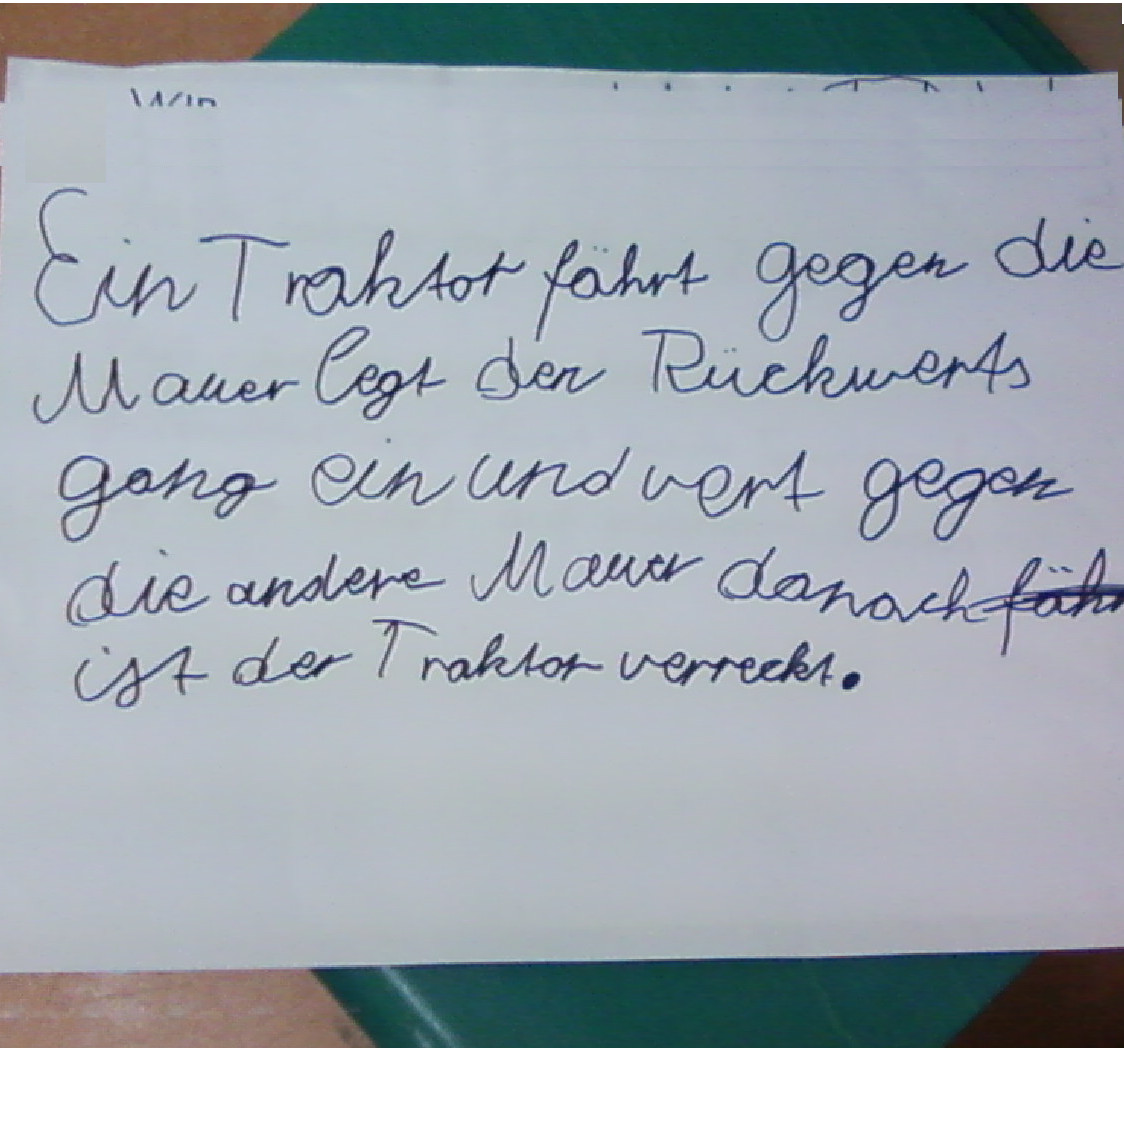 Ein Traktor fährt gegen die
Mauer legt den Rückwerts
gang ein und vert gegen
die andere Mauer danach fähr
ist der Traktor verreckt.